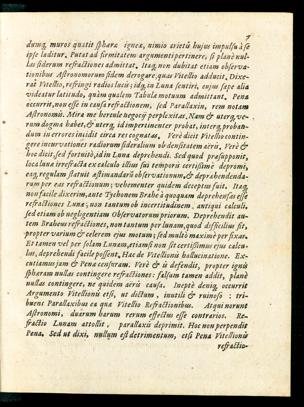 7
duing, muros quatit sphæra ignea, nimio arietis hujus impulsu à se
ipse laditur. Putat ad firmitatem argumenti pertinere, si planè nul-
las siderum refractiones admittat. Itaq, non dubitat etiam observa-
tionibus Astronomorum fidem derogare, quas Vitellio adducit. Dixe-
rat Vitellio, restringi radios lucis; idq in Luna sentiri, cujus sæpe alia
videatur latitudo, quàm qualem Tabula motuum admittant. Pena
occurrit, non esse in causa refractionem, sed Parallaxin, rem notam
Astronomis. Mira me hercule negocij perplexitas. Nam & uterq, ve-
rum dogma habet, & uterq, id impertinenter probat, interq, proban-
dum in errores incidit circa res cognatas. Verè dicit Vitellio contin-
gere incurvationes radiorum sideralium ob densitatem aëris. Verè &
hoc dicit, sed fortuitò, id in Luna deprehendi. Sed quod præsupponit,
loca lunæ irrefracta ex calculo illius sui temporis certissimè depromi,
eaq, regulam statuit æstimandarū observationum, & deprehendenda-
rum per eas refractionum; vehementer quidem deceptus fuit. Itaq,
non facilè dixerim, ante Tychonem Brahe à quoquam deprehensas esse
refractiones Lunæ; non tantum ob incertitudinem antiqui calculi,
sed etiam ob negligentiam Observatorum priorum. Deprehendit au-
tem Braheus refractiones, non tantum per lunam, quod difficilius fit,
propter varium & celerem ejus motum; sed multò maximè per fixas.
Et tamen vel per solam Lunam, etiamsi non sit certissimus ejus calcu-
lus, deprehendi facilè possent. Hac de Vitellionis hallucinatione. Ex-
cutiamus jam & Penæ censuram. Verè & is defendit, propter ignis
sphæram nullas contingere refractiones: falsum tamen addit, planè
nullas contingere, ne quidem aëris causa. Ineptè deniq, occurrit
Argumento Vitellionis etsi, ut dictum, inutili & ruinoso: tri-
buens Parallaxibus ea quæ Vitellio Refractionibus. Atqui norunt
Astronomi, duarum harum rerum effectus esse contrarios. Re-
fractio Lunam attollit, parallaxis deprimit. Hoc non perpendit
Pena. Sed ut dixi, nullum est detrimentum, etsi Pena Vitellionis
refractio-